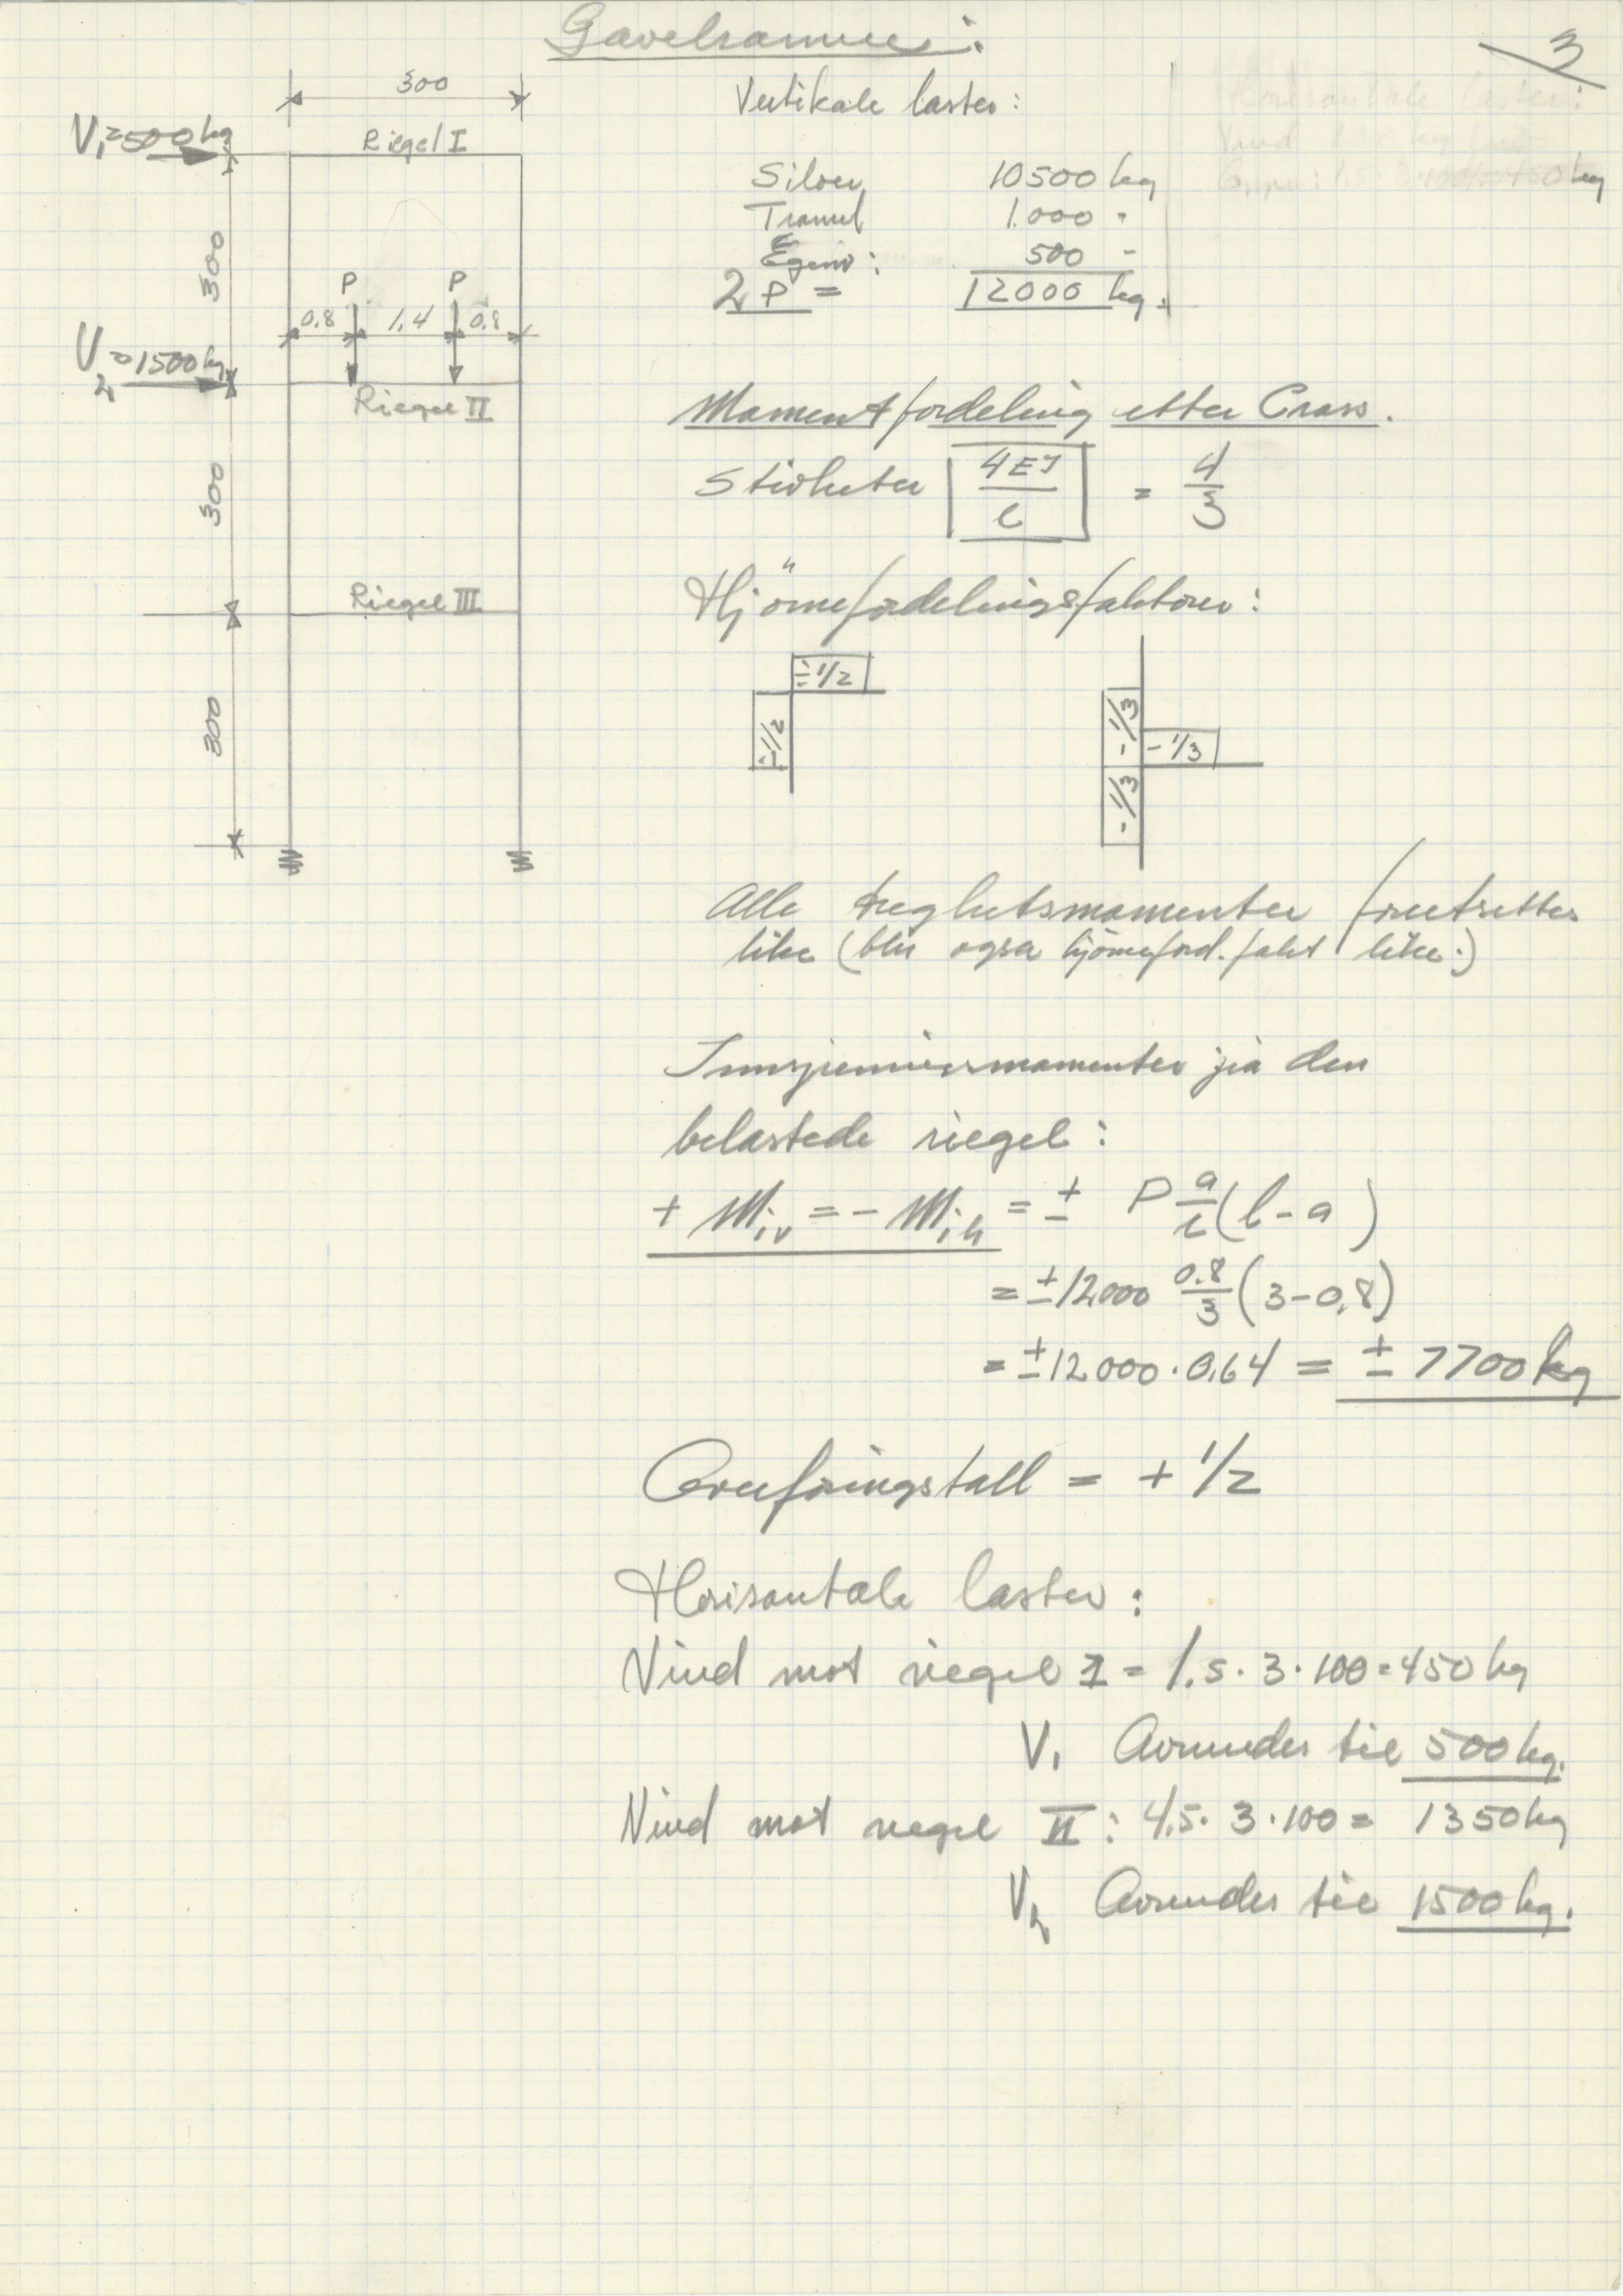 Gavelramme:
3
300
V₁=500 kg
Riegel I
300
P P
0.8 1,4 0.8
V₂=1500 kg
Riegel II
300
Riegel III
300
Vertikale laster:
Siloer 10500 kg
1.000 "
Egenv: 500 -
2P = 12000 kg.
Horisontale laster:
Vind 100 kg
1.5·3·100=450 kg
Momentfordeling etter Cross.
Stivheter 4EJ/l = 4/3
Hjörnefordelingsfaktorer:
÷1/2
÷1/2
-1/3
-1/3
-1/3
Alle treghetsmomenter forutsettes
like (blir også hjörneford.fakt like.)
Innspenningsmomenter på den
belastede riegel:
+ Miv = - Mih = ± P a/l (l-a)
= ±12000 0.8/3 (3-0,8)
= ±12000·0,64 = ± 7700 kg
Overføringstall = + 1/2
Horisontale laster:
Vind mot riegel I = 1.5·3·100=450 kg
V₁ Avrundes til 500 kg.
Vind mot riegel II: 4,5·3·100= 1350 kg
V₂ Avrundes til 1500 kg.